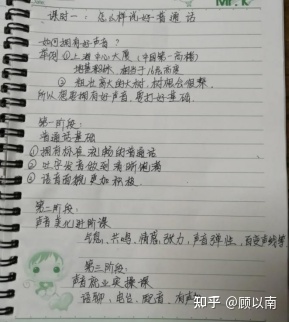 课时一：怎么样说好普通话
如何拥有好声音？
案例①上海中心大厦（中国第一高楼）
②粗壮高大的大树，树根合很繁
所以想要拥有好声音，要打好基础。
第一阶段：
普通话基础
①拥有标准流畅的普通话
②吐字发音做到清晰饱满
③语音面貌更加积极
第二阶段：
声音变化进阶课
气息、共鸣、情感、张力、声音弹性、
第三阶段：
声音就业实操课
语聊，电台，配音，有声
知乎 @顾以南